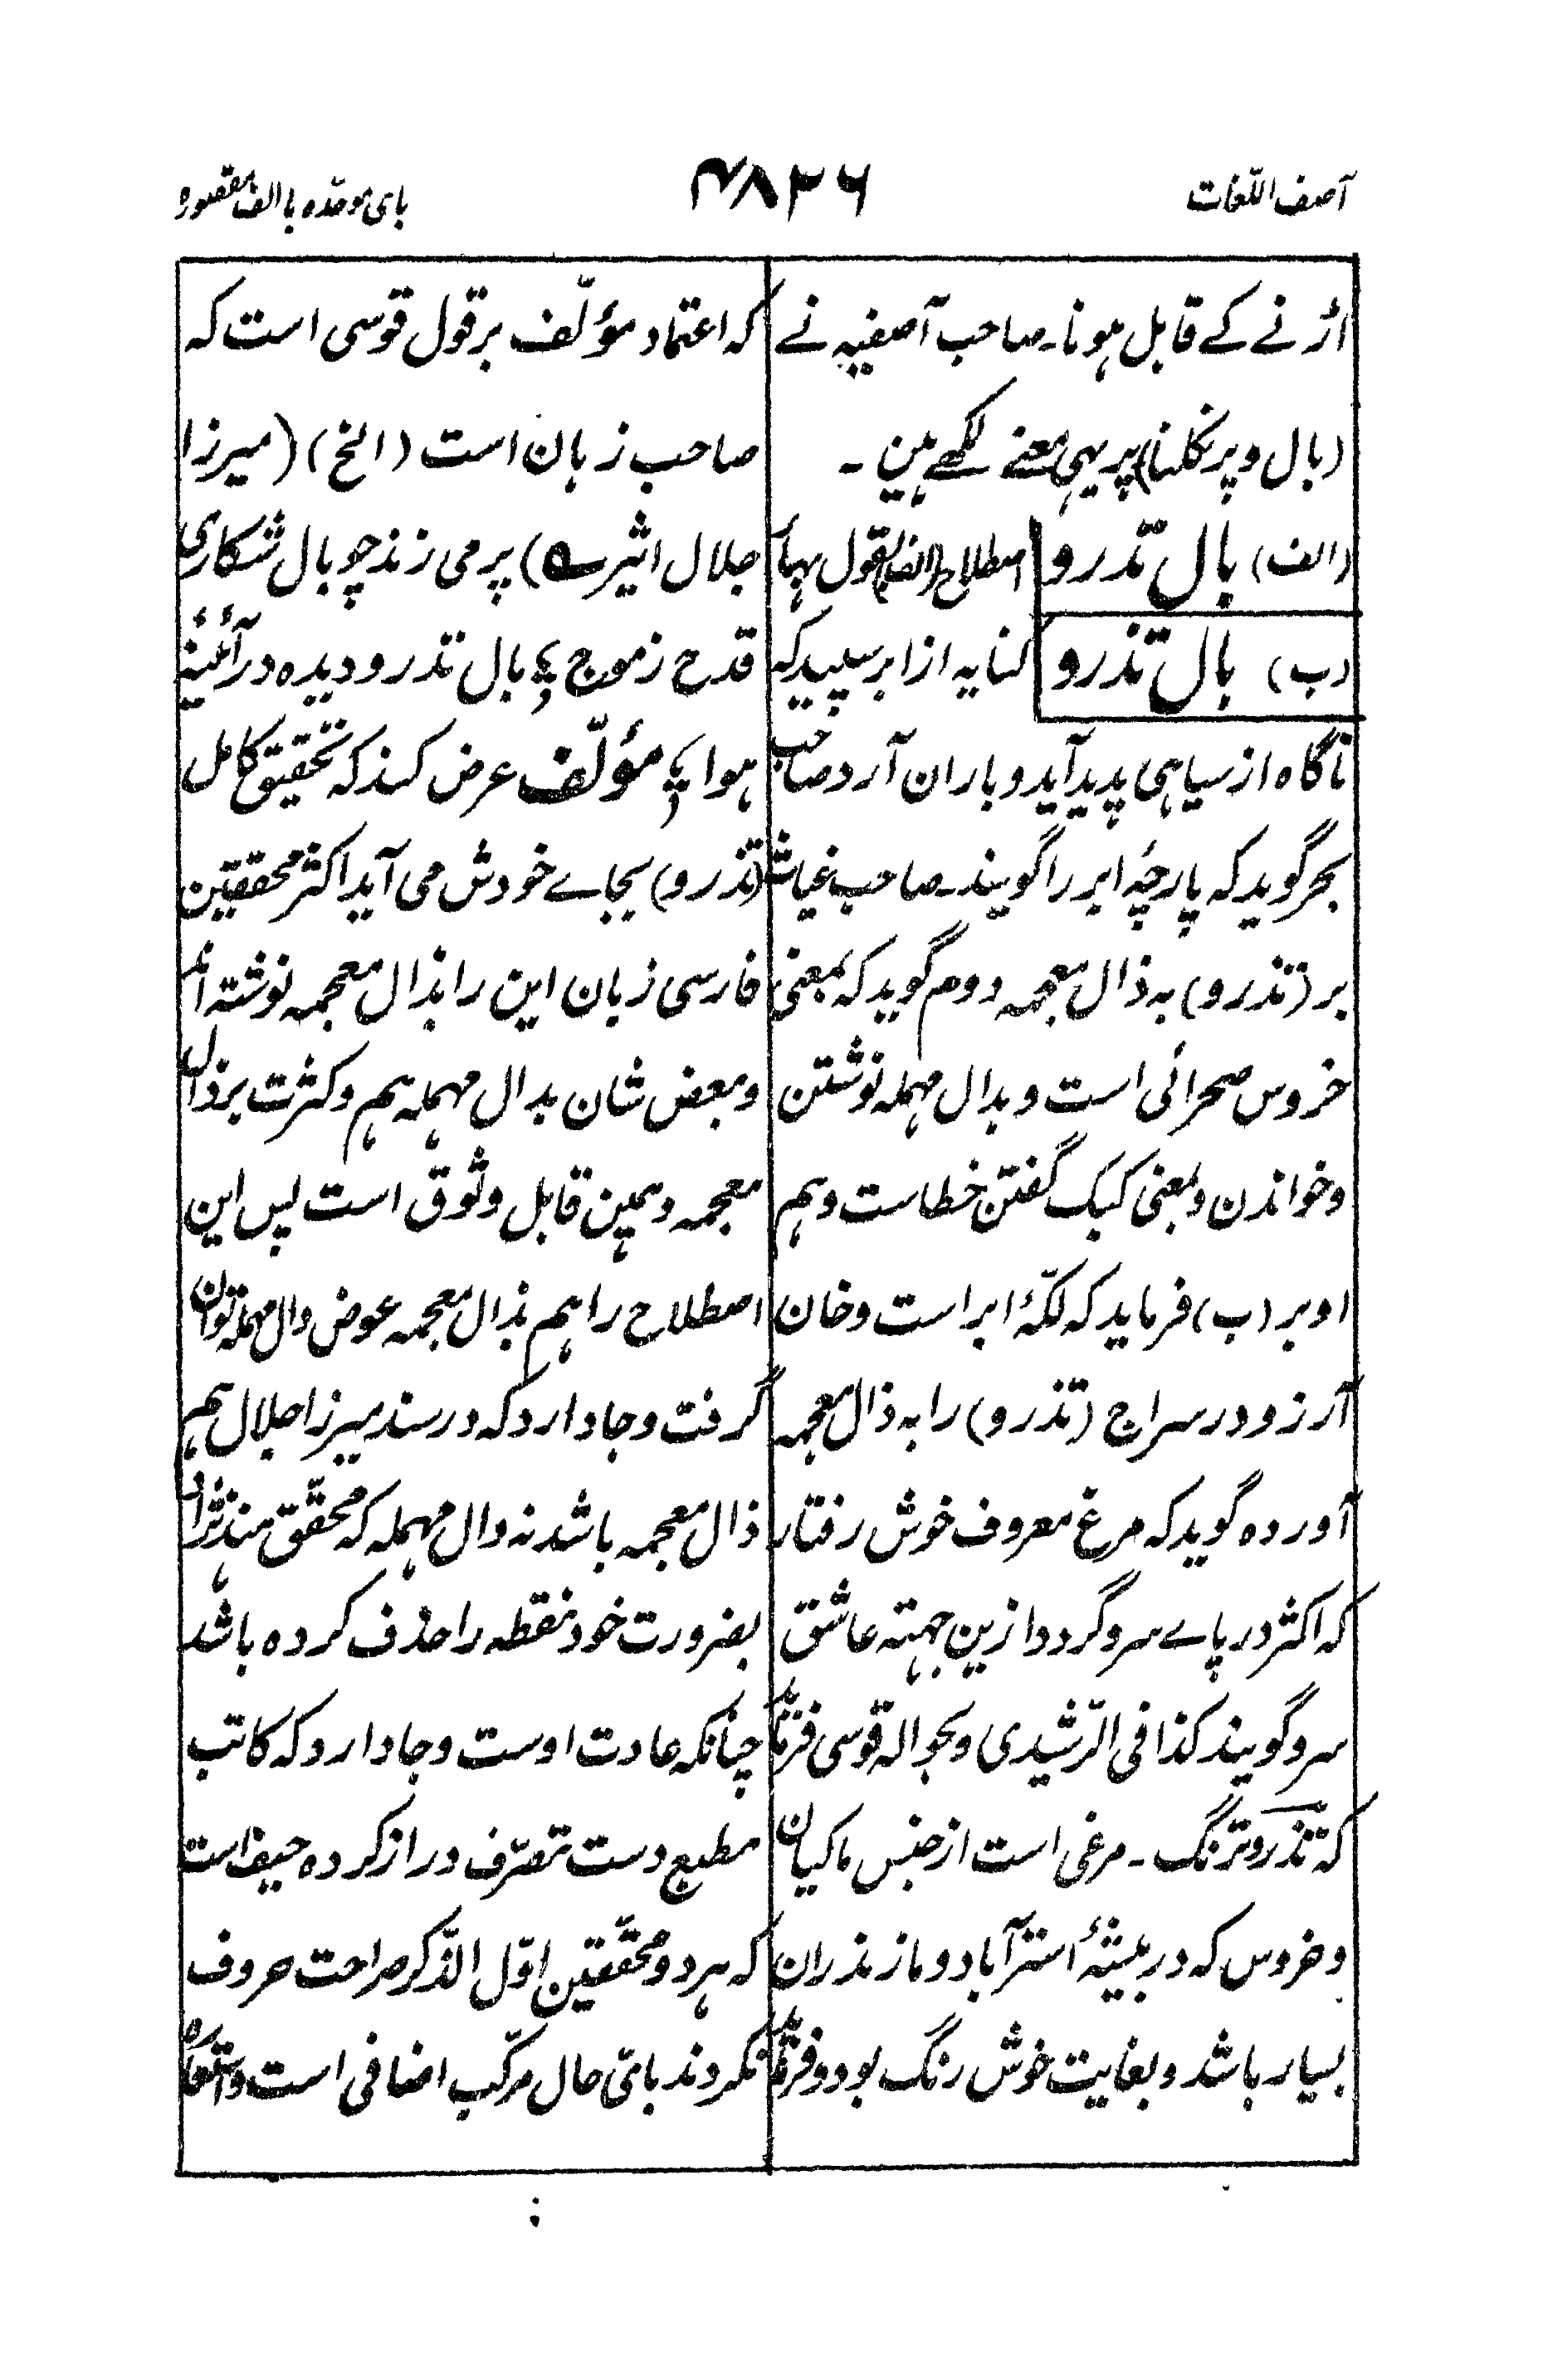 آصف اللّغات
۴۸۲۶
بای موحّدہ با الف مقصورہ
اڑنے کے قابل ہونا۔ صاحب آصفیہ نے
(بال و پر نکلنا) پر یہی معنے لکھے ہین۔
(الف) بال تدرو اصطلاح (الف) بقول بہار
(ب) بال تذرو کنایہ از ابر سپید کہ
ناگاہ از سیاہی پدید آید و باران آرد صاحب
بحر گوید کہ پارچۂ ابر را گویند۔ صاحب غیاث
بر (تذرو) بہ ذال معجمہ دوم گوید کہ بمعنی
خروس صحرائی است و بدال مہملہ نوشتن
و خواندن و بمعنی کبک گفتن خطاست و ہم
او بر (ب) فرماید کہ لکّۂ ابر است و خان
آرزو در سراج (تذرو) را بہ ذال معجمہ
آوردہ گوید کہ مرغ معروف خوش رفتار
کہ اکثر در پاے سرو گردد ازین جہتہ عاشق
سرو گویند کذا فی الرّشیدی و بحوالہ قوسی فرماید
کہ تذرو ترنگ۔ مرغی است از جنس ماکیان
و خروس کہ در بیشۂ استرآباد و مازندران
بسیار باشد و بغایت خوش رنگ بود و فرماید
کہ اعتماد مؤلّف بر قول قوسی است کہ
صاحب زبان است (الخ) (میرزا
جلال اثیر ے) پر می زند چو بال شکاری
قدح ز موج ؛ بال تذرو دیدہ در آئینۂ
ہوا ؛ مؤلّف عرض کند کہ تحقیق کامل
(تذرو) بجاے خودش می آید اکثر محققین
فارسی زبان این را بذال معجمہ نوشتہ اند
و بعض شان بدال مہملہ ہم و کثرت بر ذال
معجمہ و ہمین قابل وثوق است پس این
اصطلاح را ہم بذال معجمہ عوض دال مہملہ توان
گرفت و جا دارد کہ در سند میرزا جلال ہم
ذال معجمہ باشد نہ دال مہملہ کہ محقّق ہند نژاد
بضرورت خود نقطہ را حذف کردہ باشد
چنانکہ عادت اوست و جا دارد کہ کاتب
مطبع دست تصرّف دراز کردہ حیف است
کہ ہر دو محقّقین اوّل الذّکر صراحت حروف
نکردند بایّ حال مرکّب اضافی است و استعارہ